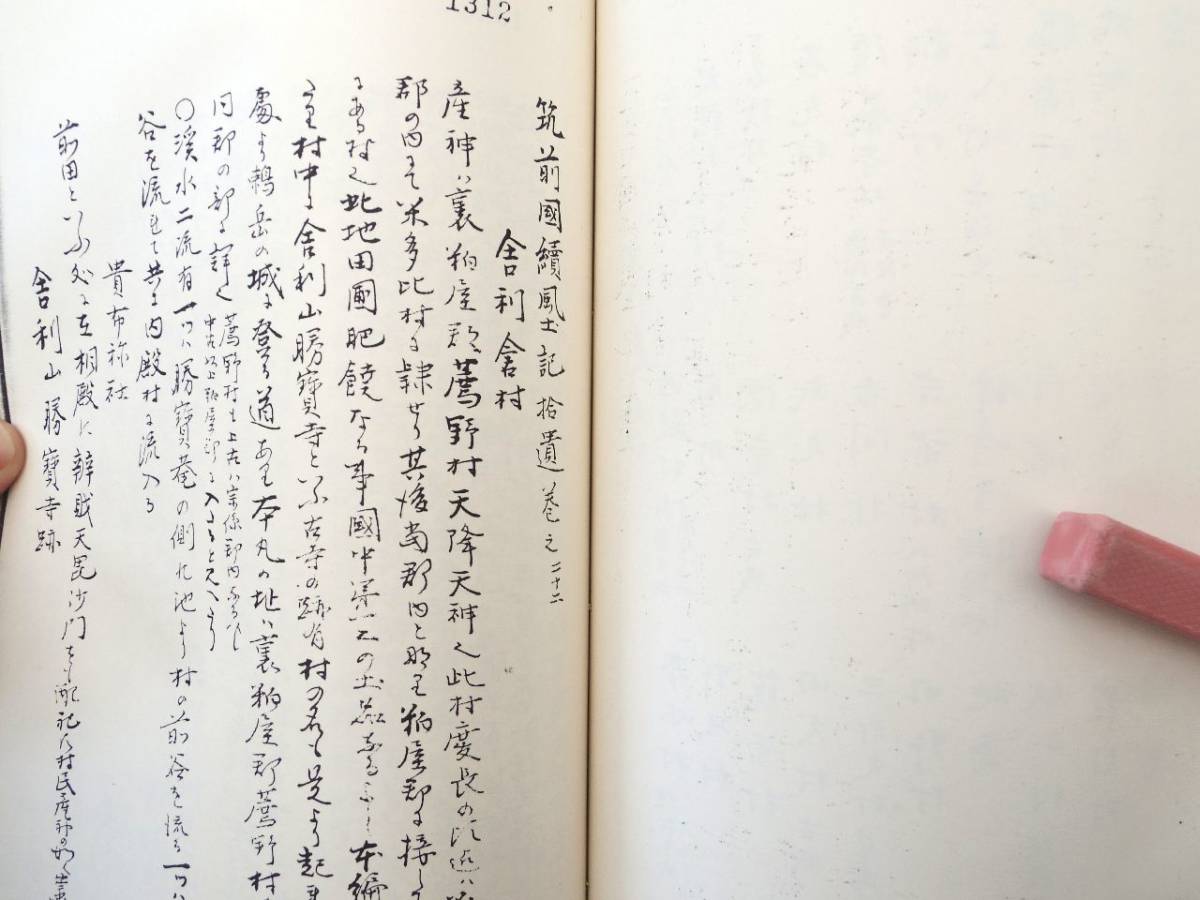 1312
筑前國續風土記拾遺巻之二十二
舎利倉村
産神ハ裏粕屋郡薦野村天降天神也此村慶長の比迄ハ
郡の内にて米多比村に隷せり其後當郡内と成て粕屋郡に接し
にある村也此地田圃肥饒なる事國中第一の土品なるよし本編
村中に舎利山勝寶寺といふ古寺の跡有村の名も是より起
處より鷯岳の城に登る道あり本丸の址ハ裏粕屋郡薦野村
同郡の部に詳也薦野村も上古ハ宗像郡内なるへし中古以上粕屋郡に入さると見へたり
〇溪水二流有一つハ勝寶菴の側れ池より村の前谷を流る一つハ
谷を流れて共に内殿村に流入る
貴布祢社
前田といふ処に在相殿に辨戝天毘沙門を配祀す村民産神の如く
舎利山勝寶寺跡